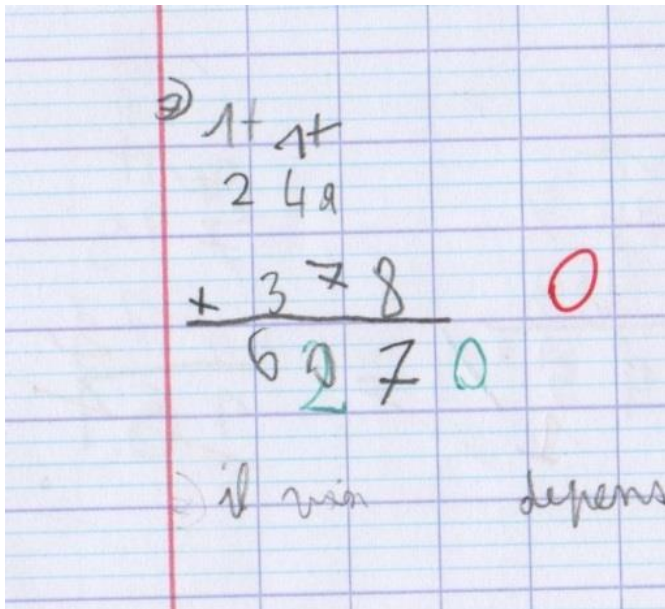 1+ 1+
2 4 9
+ 3 7 8 0
6 2 7 0
il depens